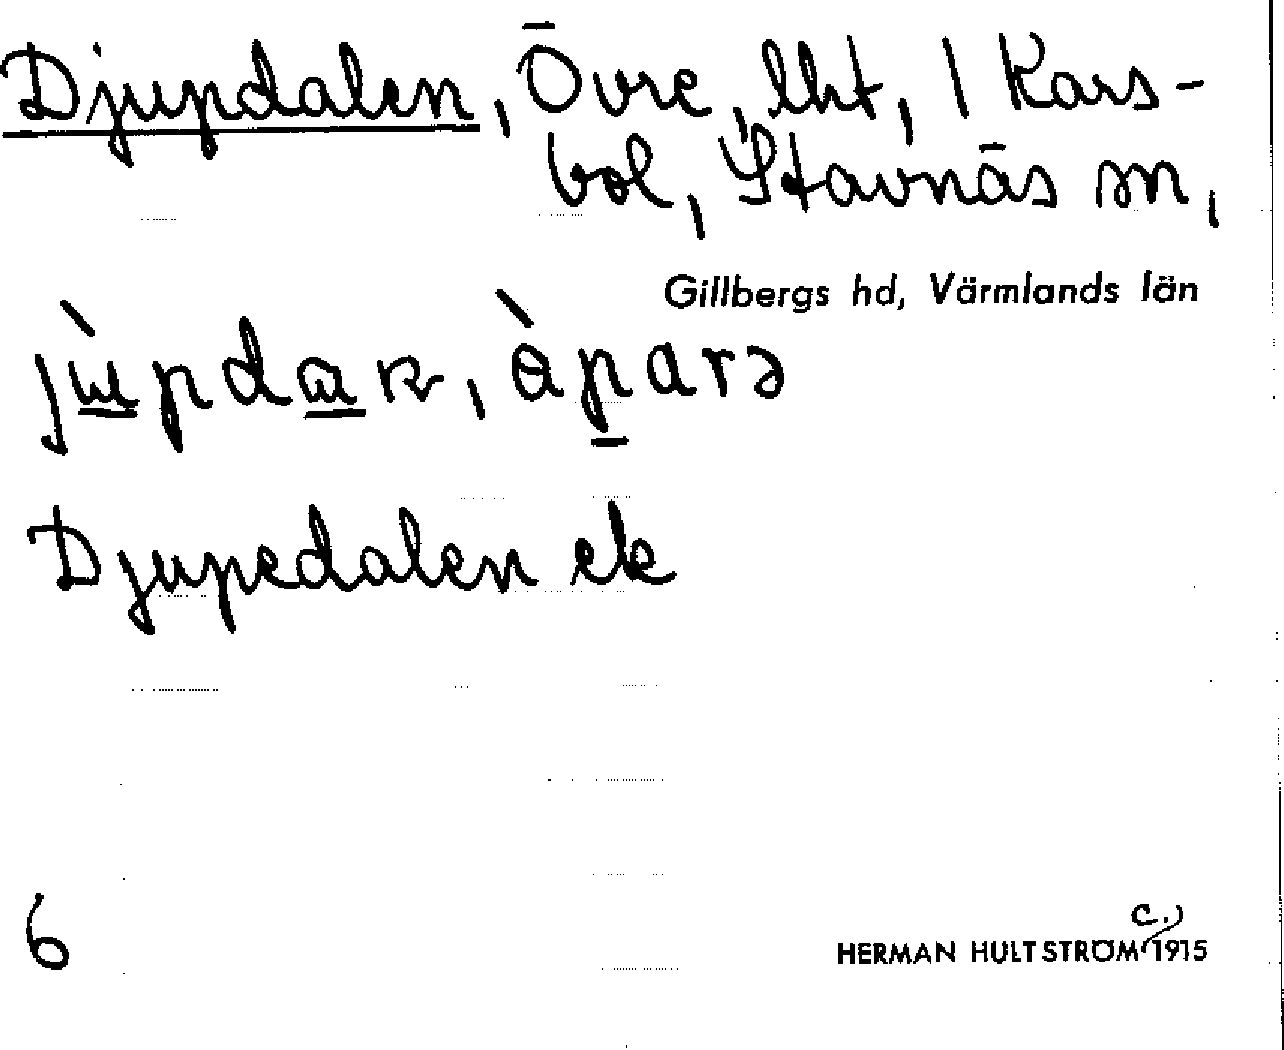 Djupdalen, Övre, lht, 1 Kars-
bol, Stavnäs sn,
Gillbergs hd, Värmlands län
Djupedalen ek
6
c.)
HERMAN HULTSTRÖM 1915